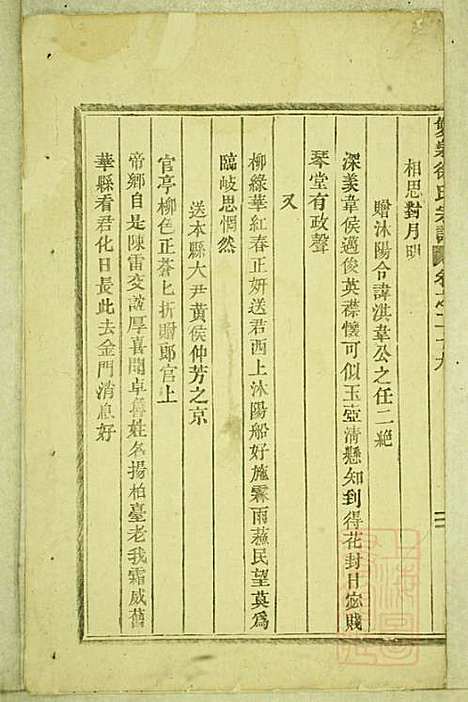 徐氏宗譜 卷之二十九
相思對月明
贈沐陽令諱淇韋公之任二絕
深羨韋侯邁俊英襟懷可似玉壺清懸知到得花封日宓賤
琴堂有政聲
又
柳綠華紅春正妍送君西上沐陽船好施霖雨蘇民望莫爲
臨岐思惘然
送本縣大尹黃侯仲芳之京
官亭柳色正蒼匕折贈郎官上
帝鄉自是陳雷交誼厚喜聞卓魯姓名揚柏臺老我霜威舊
華縣看君化日長此去金門消息好